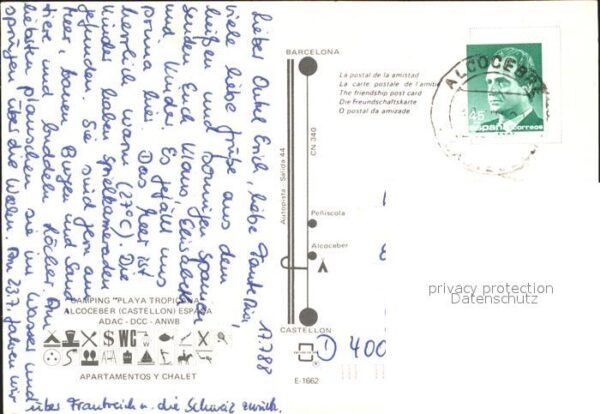 17.7.88
Lieber Onkel Erich, liebe Tante Mia,
viele liebe Grüße aus dem
heißen und sonnigen Spanien
senden Euch Klaus, Elisabeth
und Kinder. Es gefällt uns
prima hier. Das Meer ist
herrlich warm (27°C). Die
Kinder haben Spielkameraden
gefunden. Sie sind gern am
Meer, bauen Burgen und Sand
tiere und buddeln Löcher. Am
liebsten plantschen sie im Wasser und
springen über die Wellen. Am 23.7. fahren wir
über Frankreich u. die Schweiz zurück.
CAMPING "PLAYA TROPICANA"
ALCOCEBER (CASTELLON) ESPAÑA
ADAC - DCC - ANWB
WC
APARTAMENTOS Y CHALET
BARCELONA
Autopista - Salida 44
CN 340
Peñiscola
Alcoceber
CASTELLON
E-1662
La postal de la amistad
La carte postale de l'amitié
The friendship post card
Die Freundschaftskarte
O postal da amizade
ALCOCEBRE
45
España correos
D 400
privacy protection
Datenschutz